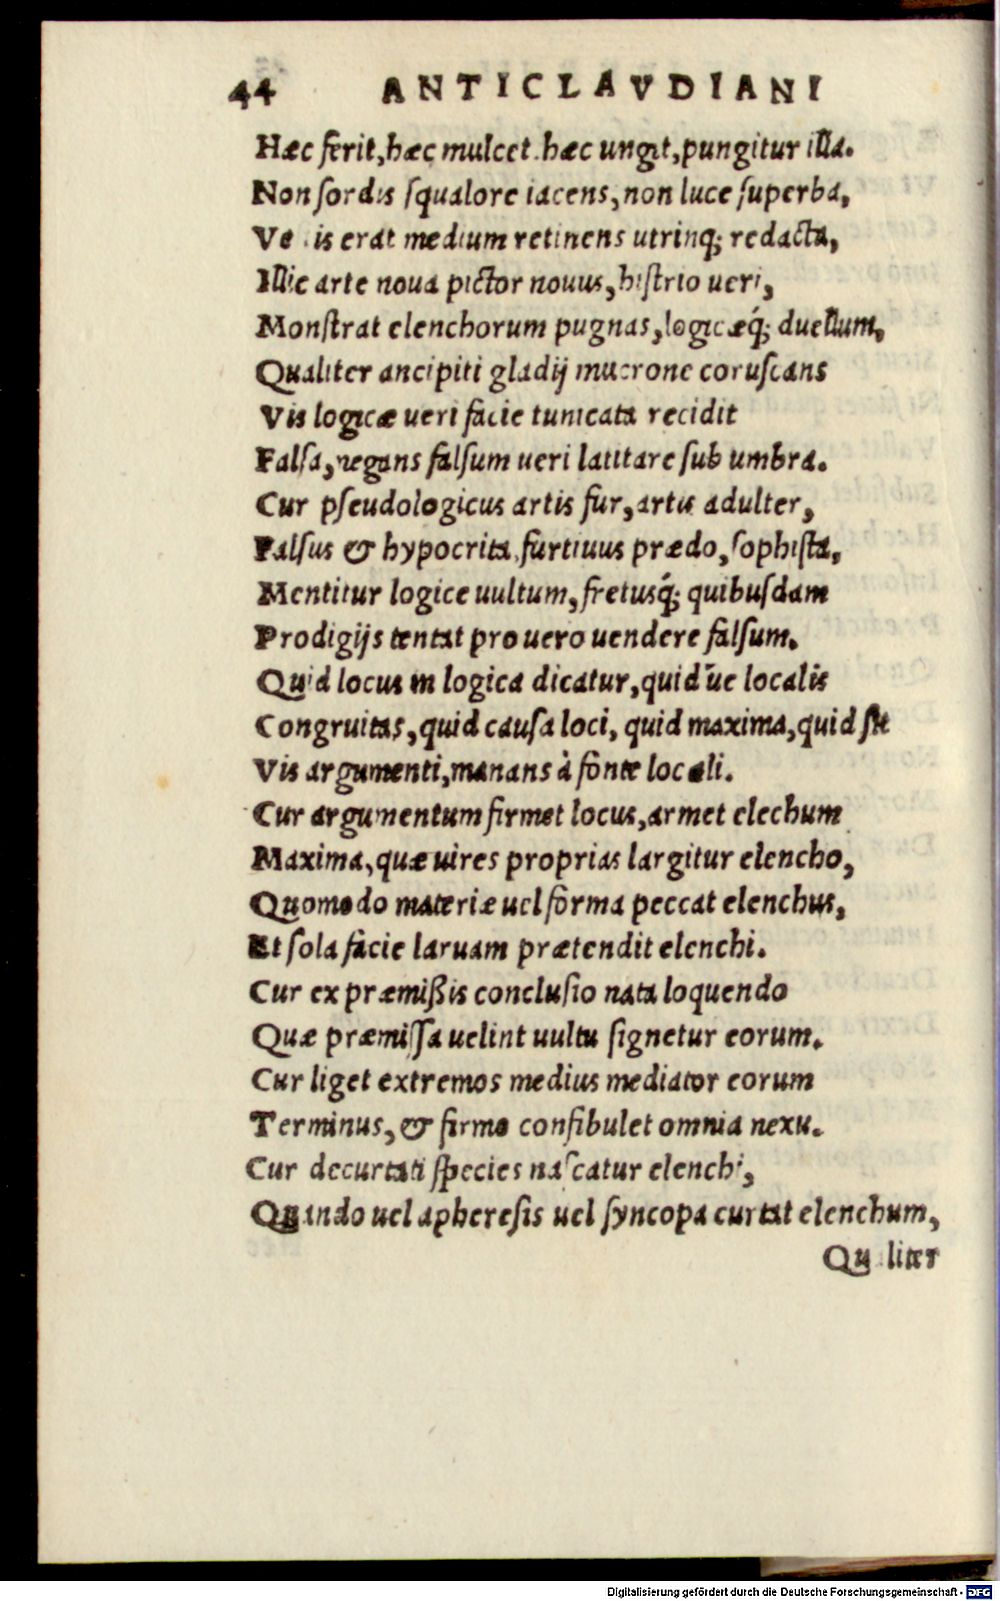 44 ANTICLAVDIANI
Hæc ferit, hæc mulcet. hæc ungit, pungitur illa.
Non sordis squalore iacens, non luce superba,
erat medium retinens utrinq; redacta,
Illic arte noua pictor nouus, histrio ueri,
Monstrat elenchorum pugnas, logicæq́; duellum,
Qualiter ancipiti gladij mucrone coruscans
Vis logicæ ueri facie tunicata recidit
Falsa, negans falsum ueri latitare sub umbra.
Cur pseudologicus artis fur, artis adulter,
Falsus & hypocrita, furtiuus prædo, sophista,
Mentitur logice uultum, fretusq́; quibusdam
Prodigijs tentat pro uero uendere falsum.
Quid locus in logica dicatur, quid ūe localis
Congruitas, quid causa loci, quid maxima, quid sit
Vis argumenti, manans à fonte locali.
Cur argumentum firmet locus, armet elechum
Maxima, quæ uires proprias largitur elencho,
Quomodo materiæ uel forma peccat elenchus,
Et sola facie laruam prætendit elenchi.
Cur ex præmißis conclusio nata loquendo
Quæ præmissa uelint uultu signetur eorum.
Cur liget extremos medius mediator eorum
Terminus, & firmo confibulet omnia nexu.
Cur decurtati species nascatur elenchi,
Quando uel apheresis uel syncopa curtat elenchum,
Qualiter
Digitalisierung gefördert durch die Deutsche Forschungsgemeinschaft - DFG